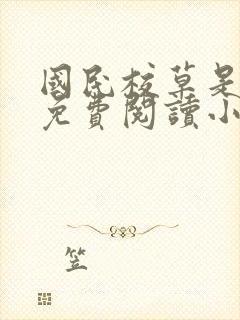 國民校草是
免費閱讀小
笠